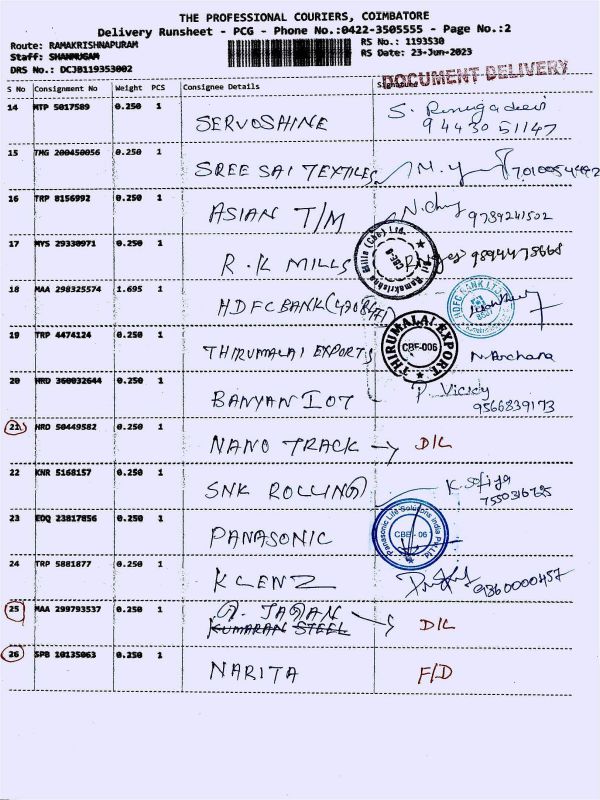 THE PROFESSIONAL COURIERS, COIMBATORE
Delivery Runsheet - PCG - Phone No.:0422-3505555 - Page No.:2
Route: RAMAKRISHNAPURAM RS No.: 1193530
Staff: SHANMUGAM RS Date: 23-Jun-2023
DRS No.: DCJB119353002
DOCUMENT DELIVERY
S No Consignment No Weight PCS Consignee Details Signature
14 MTP 5017589 0.250 1 SERVOSHINE S. Renugadevi
9443051147
15 TMG 200450056 0.250 1 SREE SAI TEXTILES
16 TRP 8156992 0.250 1 ASIAN T/M 9789241502
17 MYS 29330971 0.250 1 R.K MILLS
Sri Ramakrishna Mills (Cbe) Ltd.
CBE-6
18 MAA 298325574 1.695 1 HDFC BANK
HDFC BANK LTD
19 TRP 4474124 0.250 1 THIRUMALAI EXPORTS N. Archana
THIRUMALAI EXPORT
CBE-006
20 HRD 360032644 0.250 1 BANYAN IOT P. Vicky
9566839173
21 HRD 50449582 0.250 1 NANO TRACK → D/L
22 KNR 5168157 0.250 1 SNK ROLLING K. Sofiya
23 EDQ 23817856 0.250 1 PANASONIC
Panasonic Life Solutions India Pvt Ltd
CBE - 06
24 TRP 5881877 0.250 1 KLENZ 9360000457
25 MAA 299793537 0.250 1 JAGAN → D/L
KUMARAN STEEL
26 SPB 10135063 0.250 1 NARITA F/D